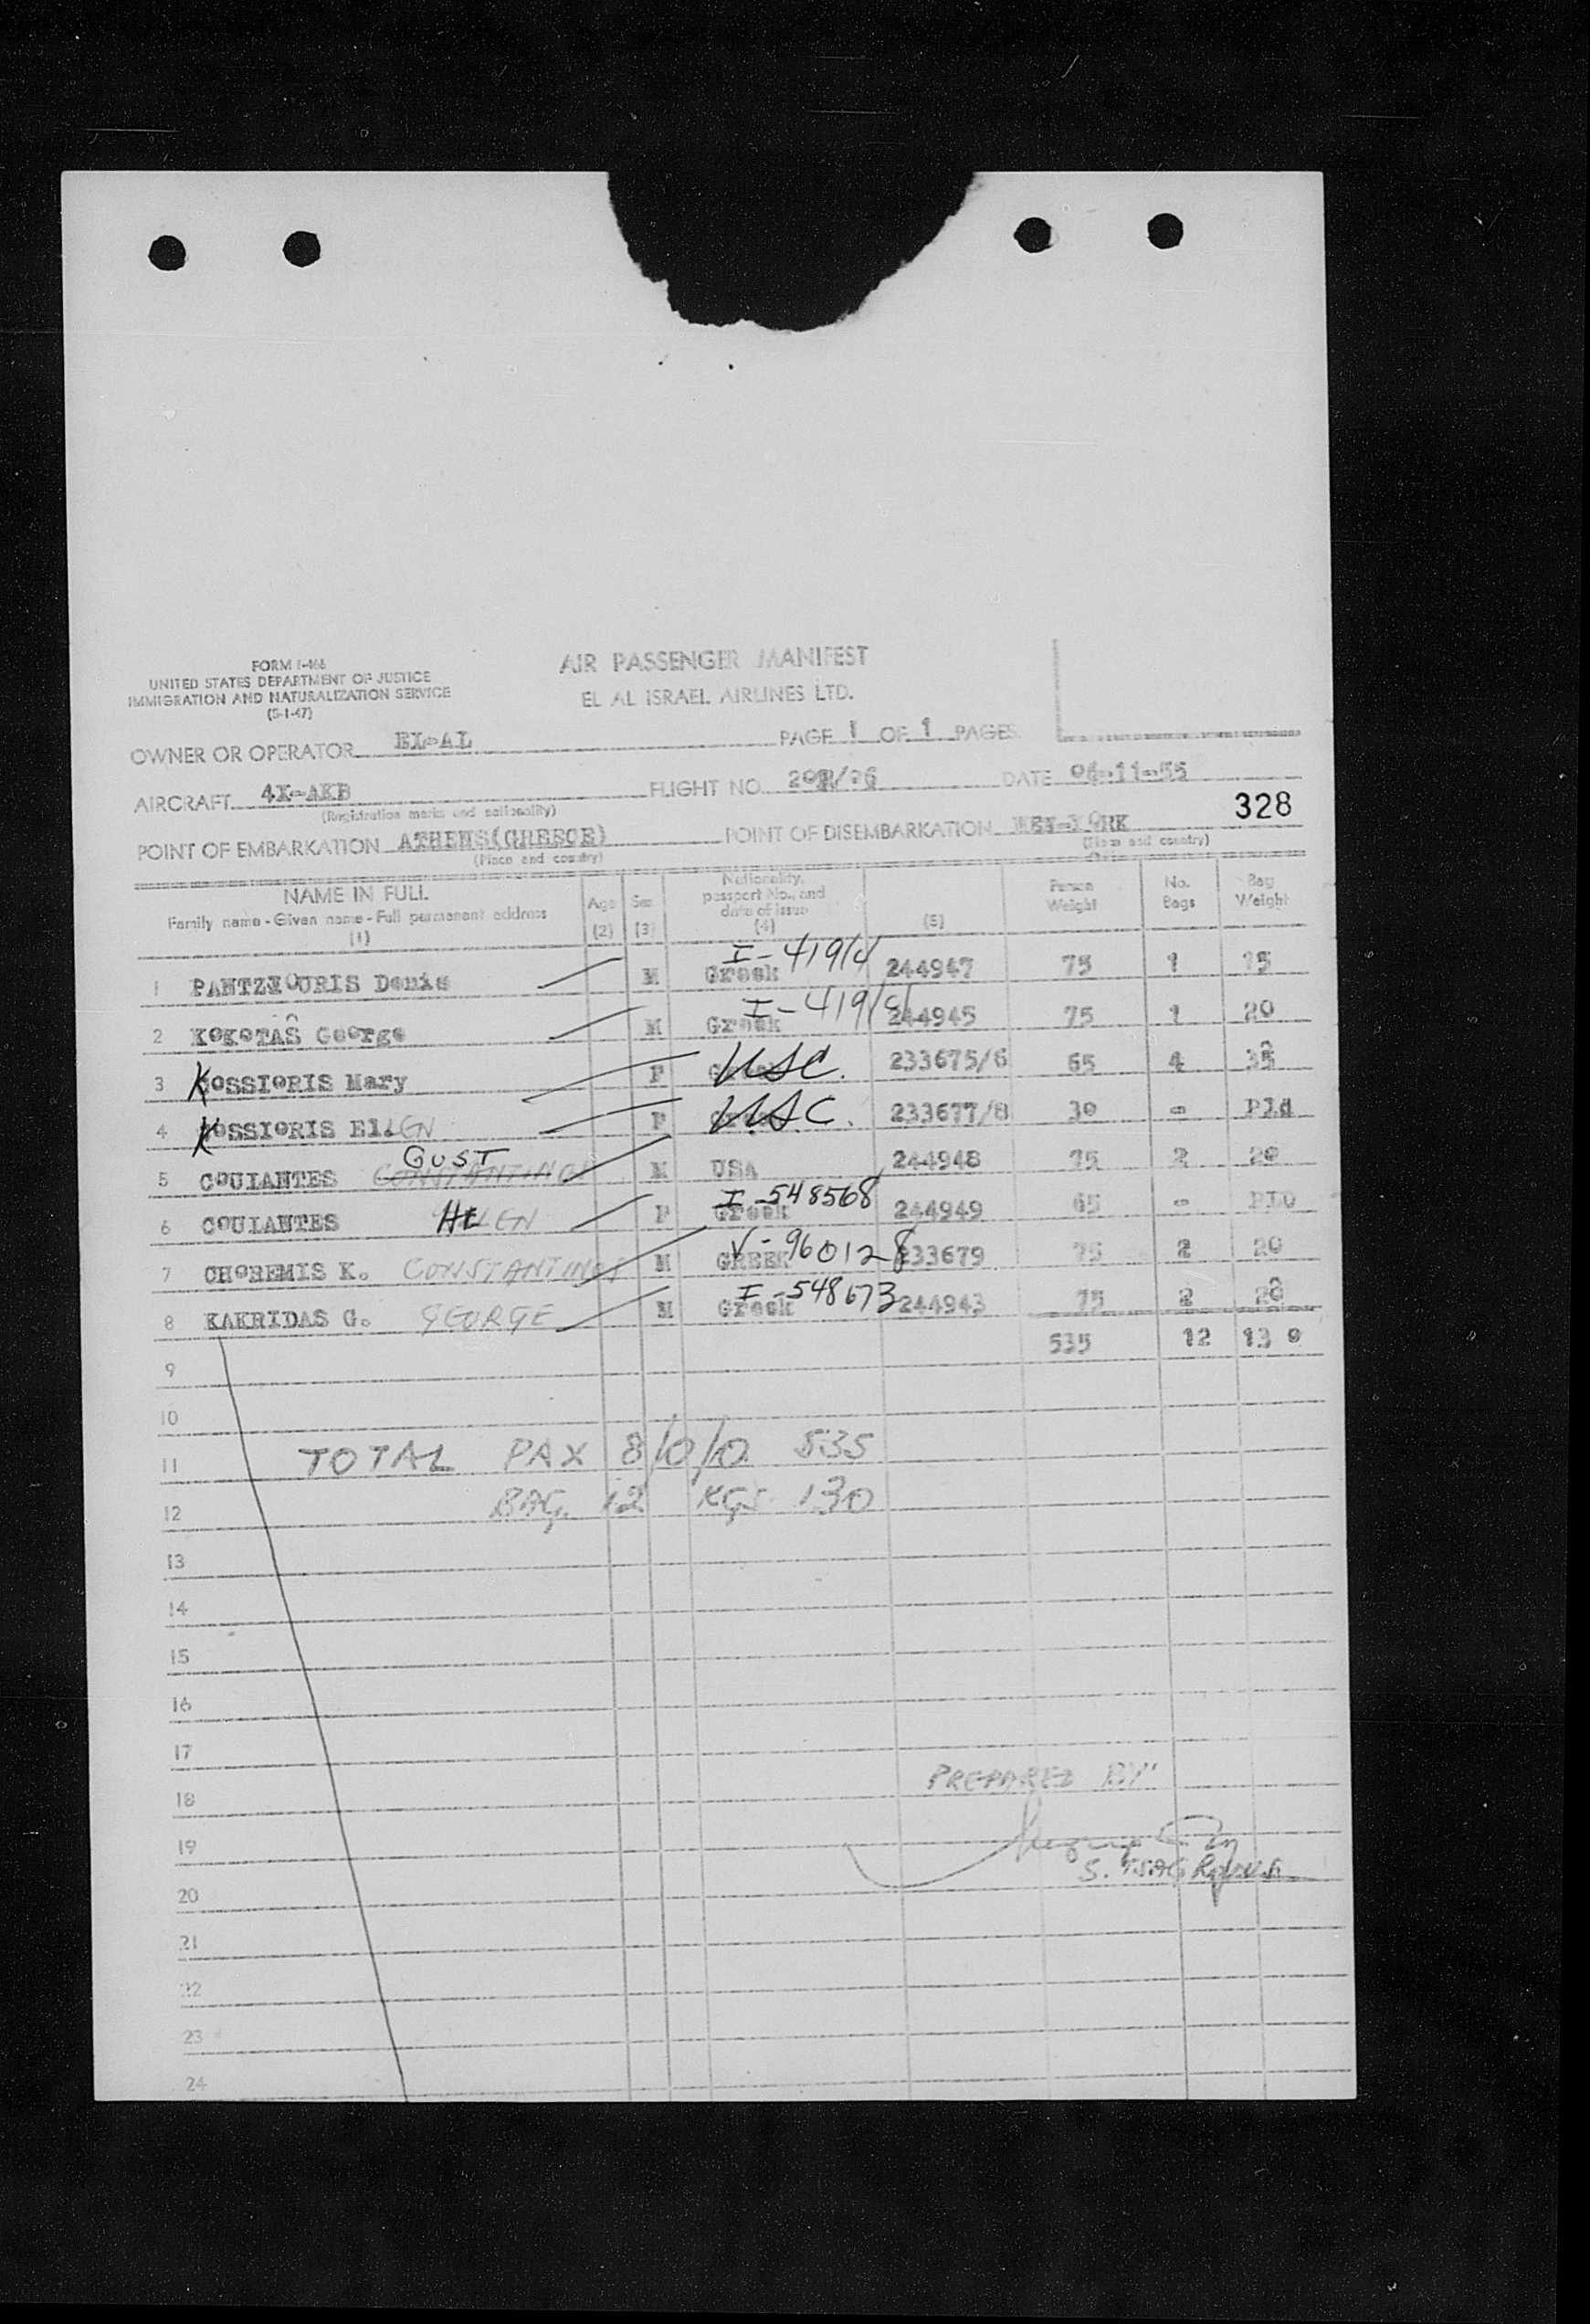 FORM I-466
UNITED STATES DEPARTMENT OF JUSTICE
IMMIGRATION AND NATURALIZATION SERVICE
(5-1-47)
AIR PASSENGER MANIFEST
EL AL ISRAEL AIRLINES LTD.
OWNER OR OPERATOR EL-AL PAGE 1 OF 1 PAGES
AIRCRAFT 4X-AKB FLIGHT NO. DATE 06-11-55
(Registration marks and nationality)
328
POINT OF EMBARKATION ATHENS(GREECE) POINT OF DISEMBARKATION NEW-YORK
(Place and country) (Place and country)
NAME IN FULL Age Sex Nationality, passport No., and date of issue Person Weight No. Bags Bag Weight
Family name - Given name - Full permanent address
(1) (2) (3) (4) (5)
1 Denis M Greek 244947 75 1 15
2 KOKOTAS George M Greek 244945 75 1 20
3 KOSSIORIS Mary F USC. 233675/6 65 4
4 KOSSIORIS ELLEN F U.S.C. 233677/8 30 - Pld
5 COULANTES CONSTANTINOS GUST M USA 244948 75 2 20
6 COULANTES HELEN F Greek I-548568 244949 65 - PLD
7 CHOREMIS K. CONSTANTINOS M GREEK V-960128 233679 75 2 20
8 KAKRIDAS G. GEORGE M Greek I-548673 244943 75 2 20
535 12 13 0
9
10
11 TOTAL PAX 8/0/0 535
12 BAG. 12 KGS. 130
13
14
15
16
17
18 PREPARED BY
19
20 S.
21
22
23
24